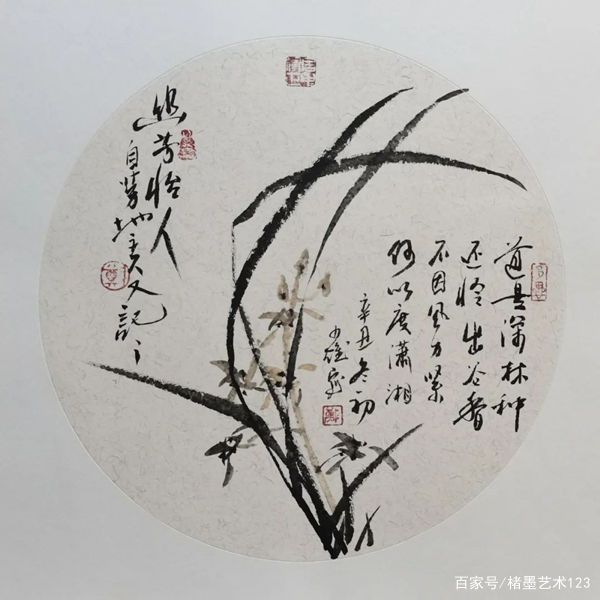 道是深林种
还怜出谷香
不因风力紧
何以度潇湘
辛丑冬初
少雄写
幽芳怡人
自芳地主人又記
百家号/楮墨艺术123